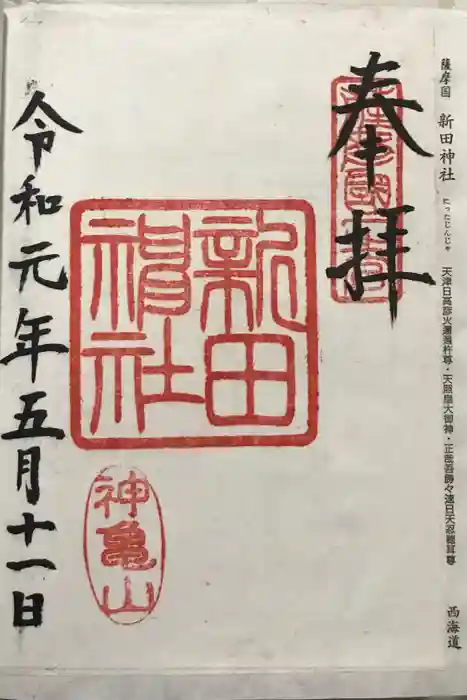 薩摩国 新田神社 にったじんじゃ 天津日高彦火瓊瓊杵尊・天照皇大御神・正哉吾勝々速日天忍穂耳尊 西海道
奉拝
新田
神社
神亀山
令和元年五月十一日